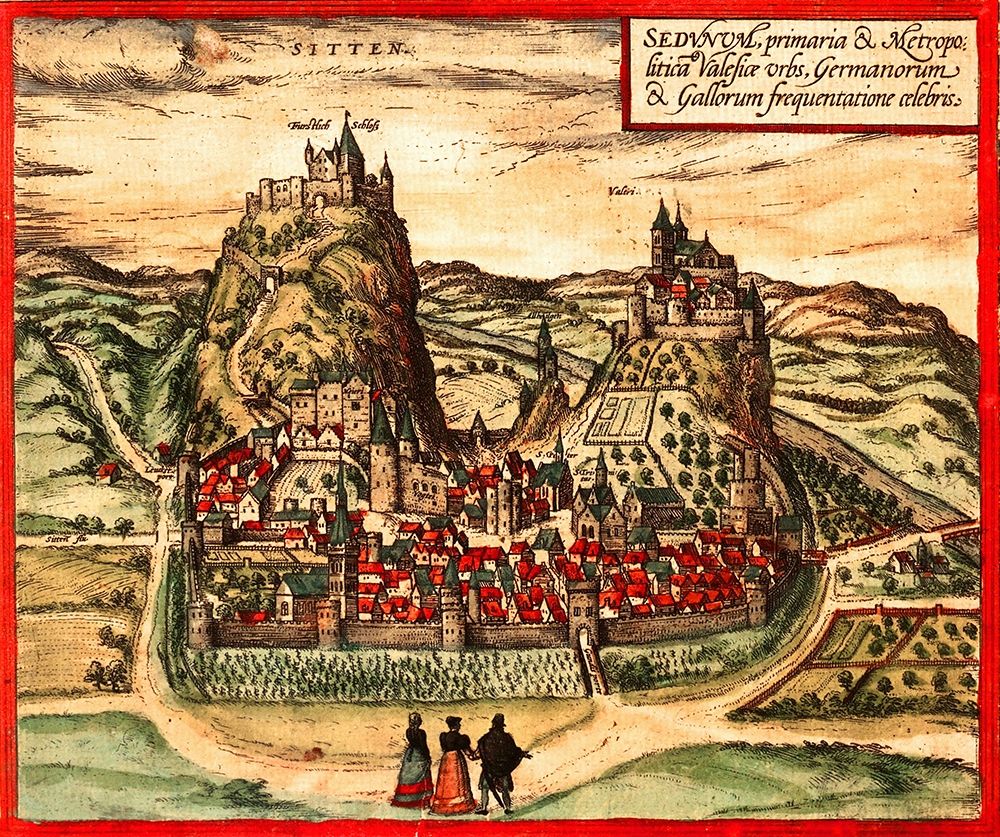 SITTEN.
SEDVNVM, primaria & Metropo:
liticā Valesiæ vrbs, Germanorum
& Gallorum frequentatione celebris.
Furstlich Schlosz
Valeri.
Sitten flu